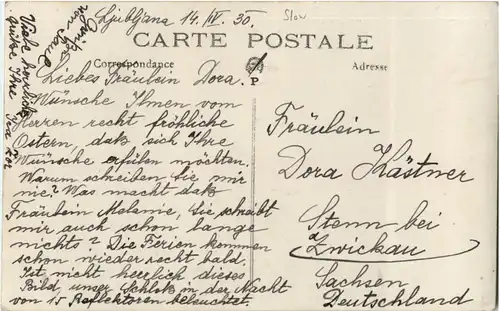 Ljubljana 14. IV. 30.
Slow
CARTE POSTALE
Correspondance
Adresse
P
Liebes Fräulein Dora.
Wünsche Ihnen vom
Herzen recht fröhliche
Ostern, daß sich Ihre
Wünsche erfülen möchten.
Warum schreiben Sie mir
nie? Was macht daß
Fräulein Melanie, Sie schreibt
mir auch schon lange
nichts? Die Ferien kommen
schon wieder recht bald.
Ist nicht herrlich dieses
Bild, unser Schloß in der Nacht
von 15 Reflektoren beleuchtet.
Viele herzliche
Grüsse Ihre
von
Fräulein
Dora Kästner
Stenn bei
Zwickau
Sachsen
Deutschland